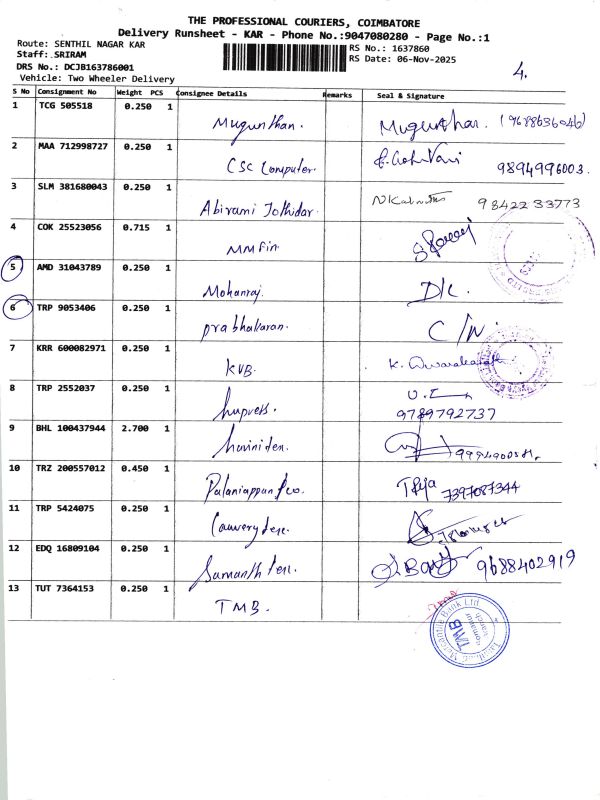 THE PROFESSIONAL COURIERS, COIMBATORE
Delivery Runsheet - KAR - Phone No.:9047080280 - Page No.:1
Route: SENTHIL NAGAR KAR
Staff: SRIRAM
DRS No.: DCJB163786001
Vehicle: Two Wheeler Delivery
RS No.: 1637860
RS Date: 06-Nov-2025
4.
S No Consignment No Weight PCS Consignee Details Remarks Seal & Signature
1 TCG 505518 0.250 1 Mugunthan. Mugunthan. (9688636046)
2 MAA 712998727 0.250 1 CSC Computer. 9894996003.
3 SLM 381680043 0.250 1 Abirami Jothidar. 9842233773
4 COK 25523056 0.715 1 MM Fin
5 AMD 31043789 0.250 1 Mohanraj. D/L
6 TRP 9053406 0.250 1 prabhakaran. C/N
7 KRR 600082971 0.250 1 KVB.
8 TRP 2552037 0.250 1 9789792737
9 BHL 100437944 2.700 1
10 TRZ 200557012 0.450 1 Palaniappan 7397087344
11 TRP 5424075 0.250 1
12 EDQ 16809104 0.250 1 9688402919
13 TUT 7364153 0.250 1 TMB.
Mercantile Bank Ltd
TMB